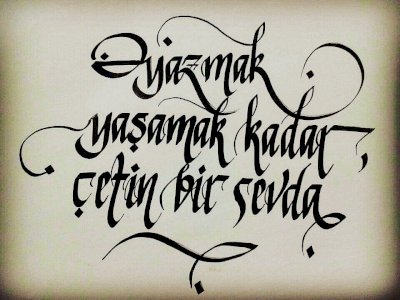 yazmak
yaşamak kadar,
çetin bir sevda